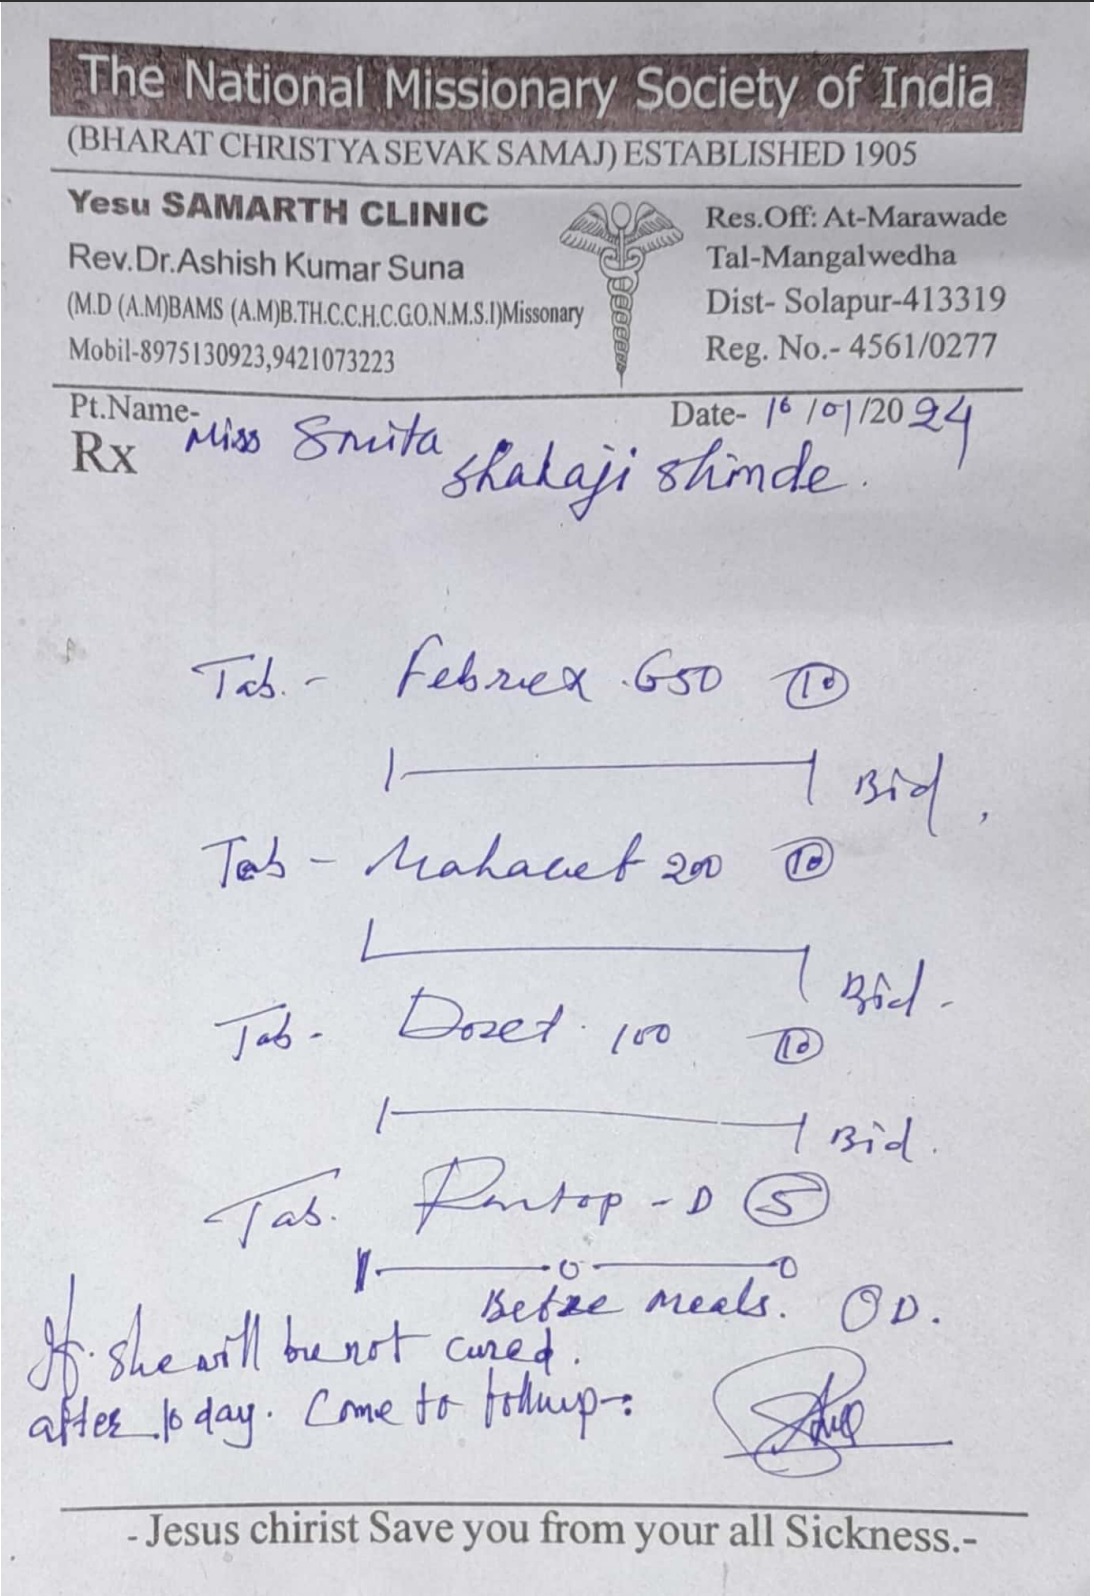 The National Missionary Society of India
(BHARAT CHRISTYA SEVAK SAMAJ) ESTABLISHED 1905
Yesu SAMARTH CLINIC
Rev.Dr.Ashish Kumar Suna
(M.D (A.M)BAMS (A.M)B.TH.C.C.H.C.G.O.N.M.S.I)Missonary
Mobil-8975130923,9421073223
Res.Off: At-Marawade
Tal-Mangalwedha
Dist- Solapur-413319
Reg. No.- 4561/0277
Pt.Name- Miss Smita
Date- 16/01/2024
Rx
Shinde.
Tab. - 650 10
Bid,
Tab - 200 10
Bid -
Tab - 100 10
Bid.
Tab. - D 5
Before meals. OD.
If she will be not cured.
after 10 day. Come to follwup-:
- Jesus chirist Save you from your all Sickness.-